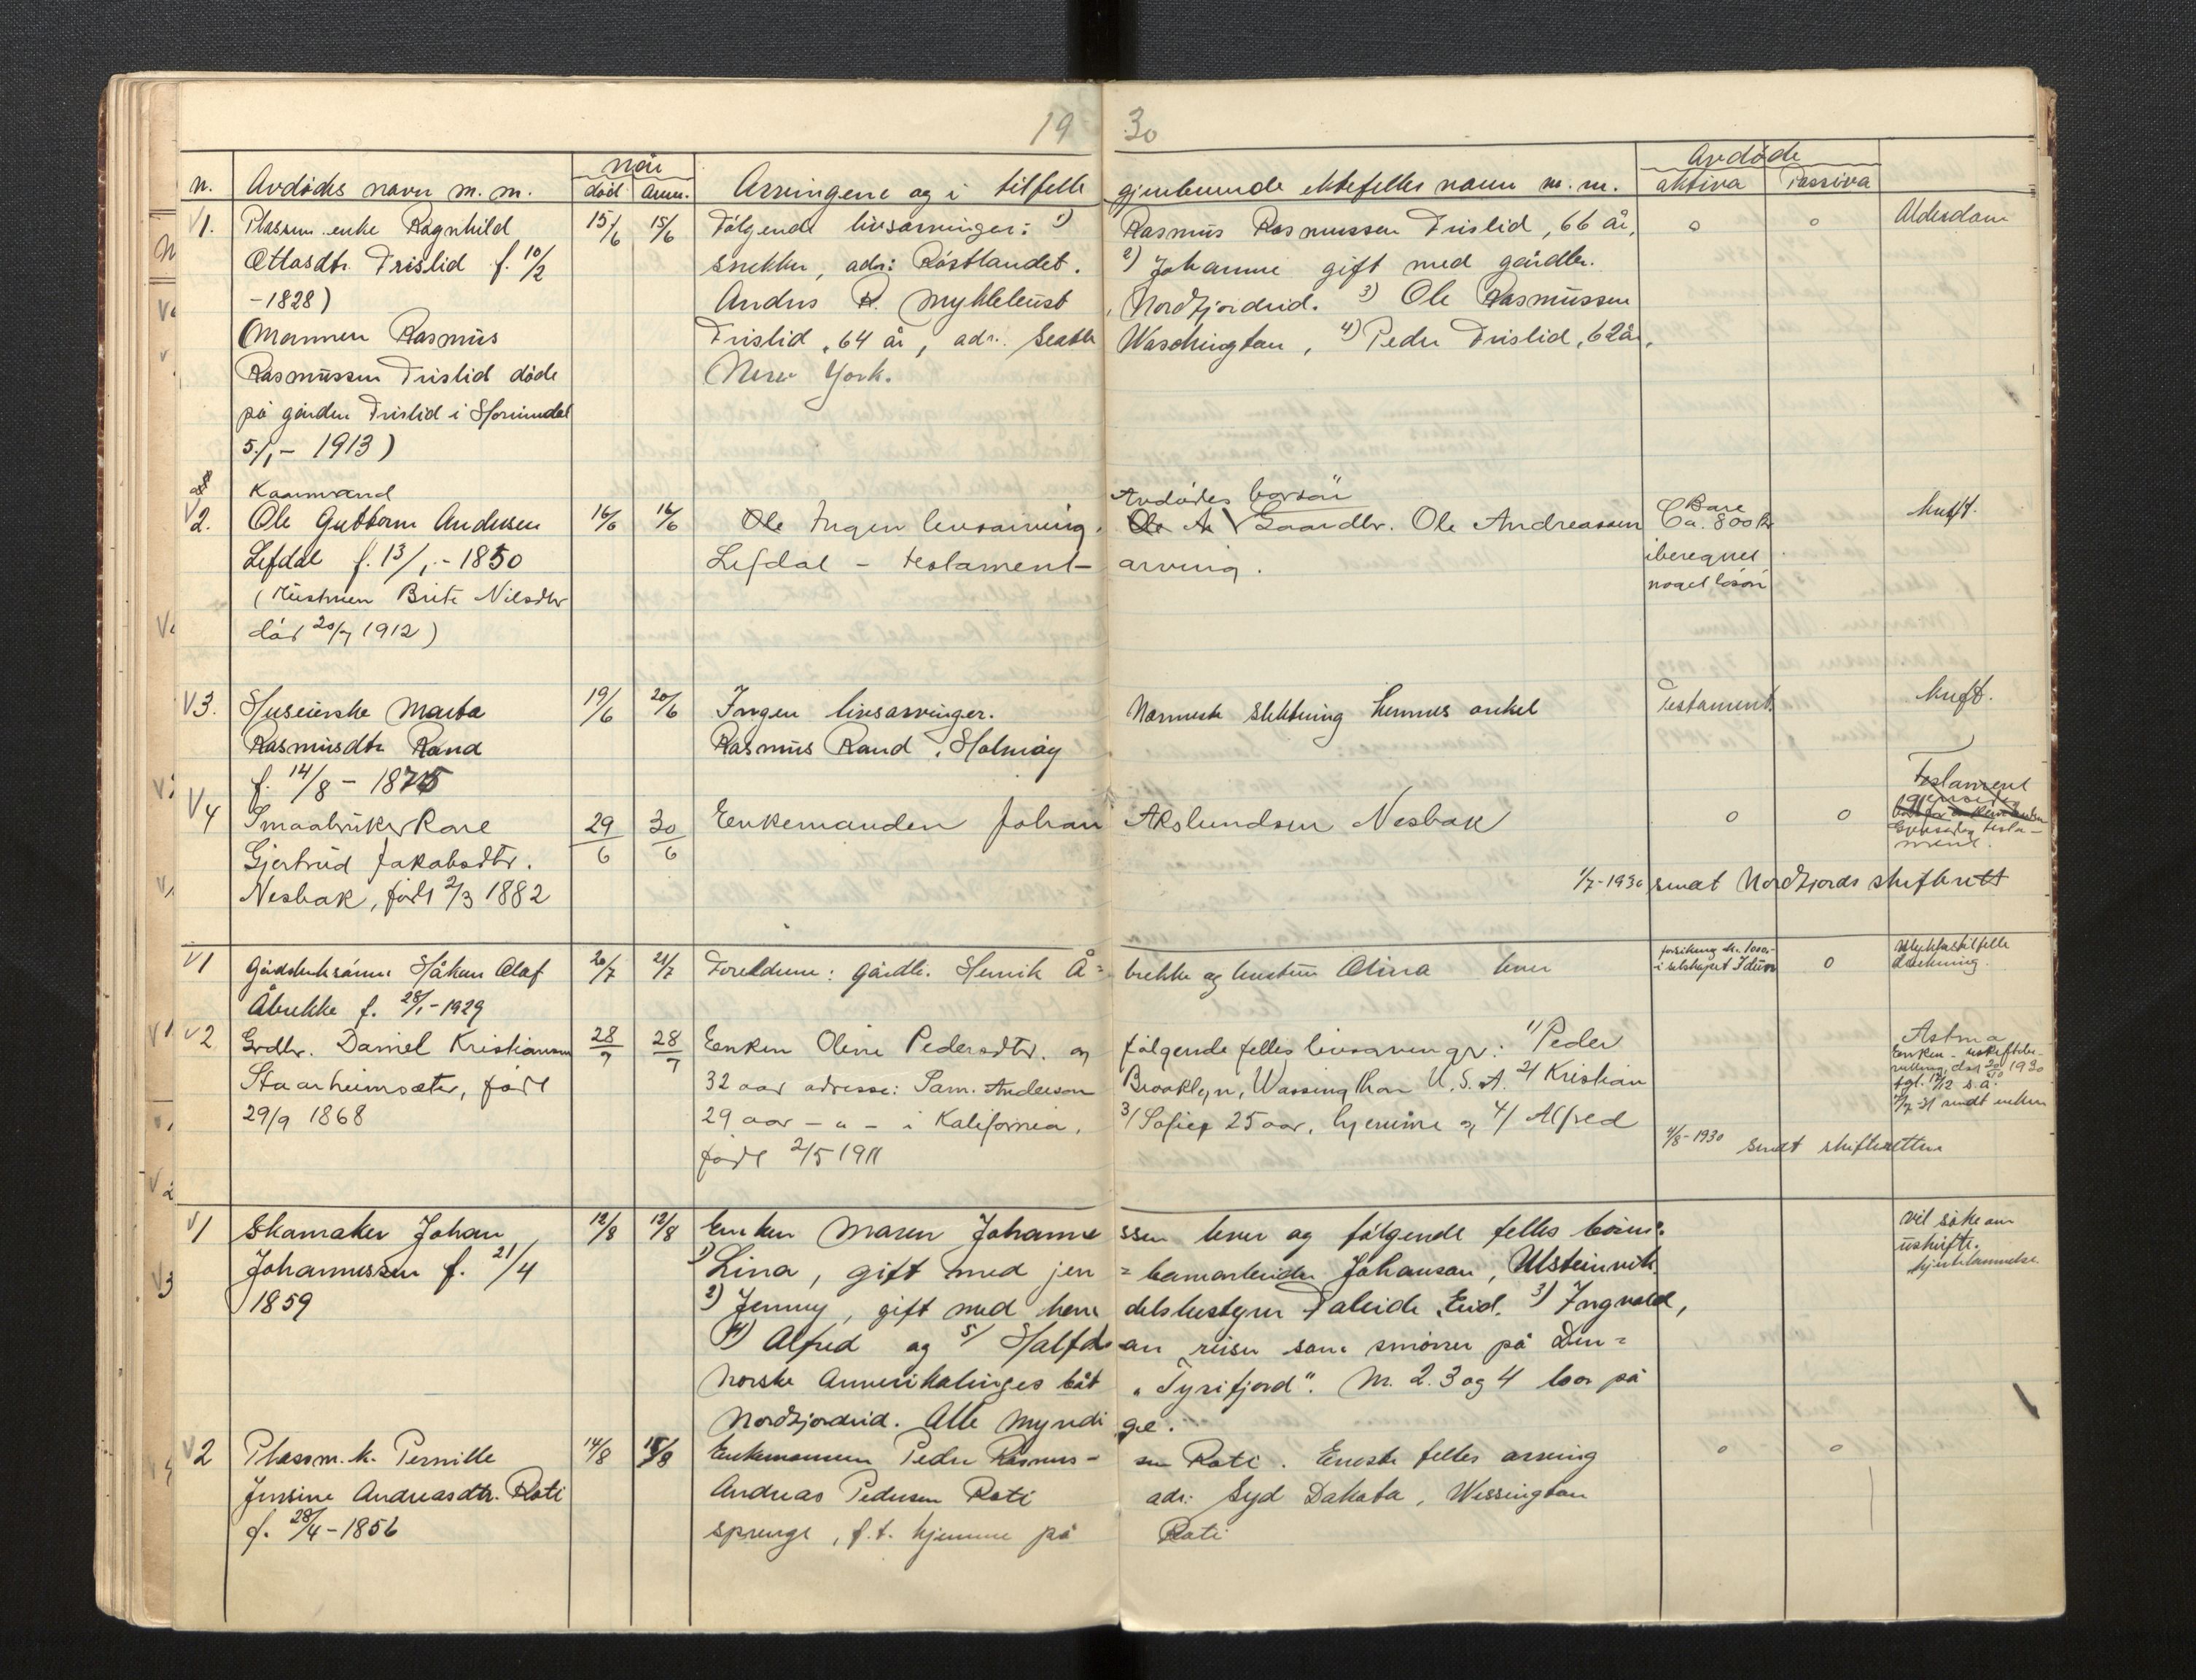 19 30
n. Avdødes navn m. m. når død Anm. Arvingene og i tilfelle gjenlevende ektefelles navn m. m. Avdøde aktiva Passiva
V1. Plassm. enke Ragnhild 15/6 15/6 Følgende livsarvinger: 1) Rasmus Rasmussen Frislid, 66 år, 0 0 Alderdom
Ottosdtr. Frislid f. 10/2 snekker, adr: Röstlandet. 2) Johanne gift med gårdbr.
-1828) Anders R. Myklebust, Nordfjordeid. 3) Ole Rasmussen
(Mannen Rasmus Frislid, 64 år, adr. Seattle Waschington, 4) Peder Frislid, 62 år,
Rasmussen Frislid døde New York.
på gården Frislid i Hornindal
5/1- 1913)
Kaarmand Avdødes borsøn Bare
V2. Ole Guttorm Andersen 16/6 16/6 Ole Ingen livsarving. Ole A Gaardbr. Ole Andreassen Ca. 800 kr Kreft.
Lefdal f. 13/1.- 1850 Lefdal - testament- arving. iberegnet
(Kustruen Brite Nilsdtr noget løsøre
død 20/7 1912)
V3. Huseierske Marta 19/6 20/6 Ingen livsarvinger. Nærmeste slektning hennes onkel Testament. Kreft.
Rasmusdtr. Rand Rasmus Rand, Holmøy
f. 14/8 - 1875
V4 Smaabruker Kone 29/6 30/6 Enkemanden Johan Akslundsen Nesbak 0 0 Testament
Gjertrud Jakobsdtr. Gjensidig testa-
ment.
Nesbak, født 2/3 1882 1/7-1930 sendt Nordfjords skifterett
V1 Gårdbrukersønn Håkon Olaf 20/7 21/7 Foreldrene: gårdbr. Henrik Å= brekke og hustru Olina lever forsikring kr. 1000,- 0 Ulykkestilfelle
Åbrekke f. 28/1-1929 i selskapet Idun drukning.
V2 Grdbr. Daniel Kristiansen 28/7 28/7 Enken Oline Pedersdtr. og følgende felles livsarvinger: 1/ Peder Astma
Staarheimsæter, født 32 aar adresse: Sam. Anderson Brooklyn, Wassingthon U.S.A. 2/ Kristian Enken - uskiftebe-
29/9 1868 29 aar - " - i Kalifornia. 3/ Sofie 25 aar, hjemme og 4/ Alfred
født 2/5 1911 4/8-1930 sendt skifteretten
V1 Skomaker Johan 12/8 12/8 Enken Maren Johanne ssen lever og følgende felles barn: Vil søke om
Johannessen f. 21/4 1) Lina, gift med jern = banearbeider Johanson, Ulsteinvik. uskifte.
1859 2) Jenny, gift med han delsbestyrer Faleide, Eid. 3) Ingvald, hjertelammelse
4) Alfred og 5/ Halfd an reiser som smører på Den =
norske Amerikalinjes båt „Tyrifjord". Nr. 2. 3 og 4 bor på
Nordfjordeid. Alle myndi ge.
V2 Plassm. k. Pernille 14/8 15/8 Enkemannen Peder Rasmus- sen Roti. Eneste felles arving 0 0
Jensine Andreasdtr. Roti Andreas Pedersen Roti adr: Syd Dakota, Wissington
f. 28/4 - 1856 sprengs, f.t. hjemme på Roti